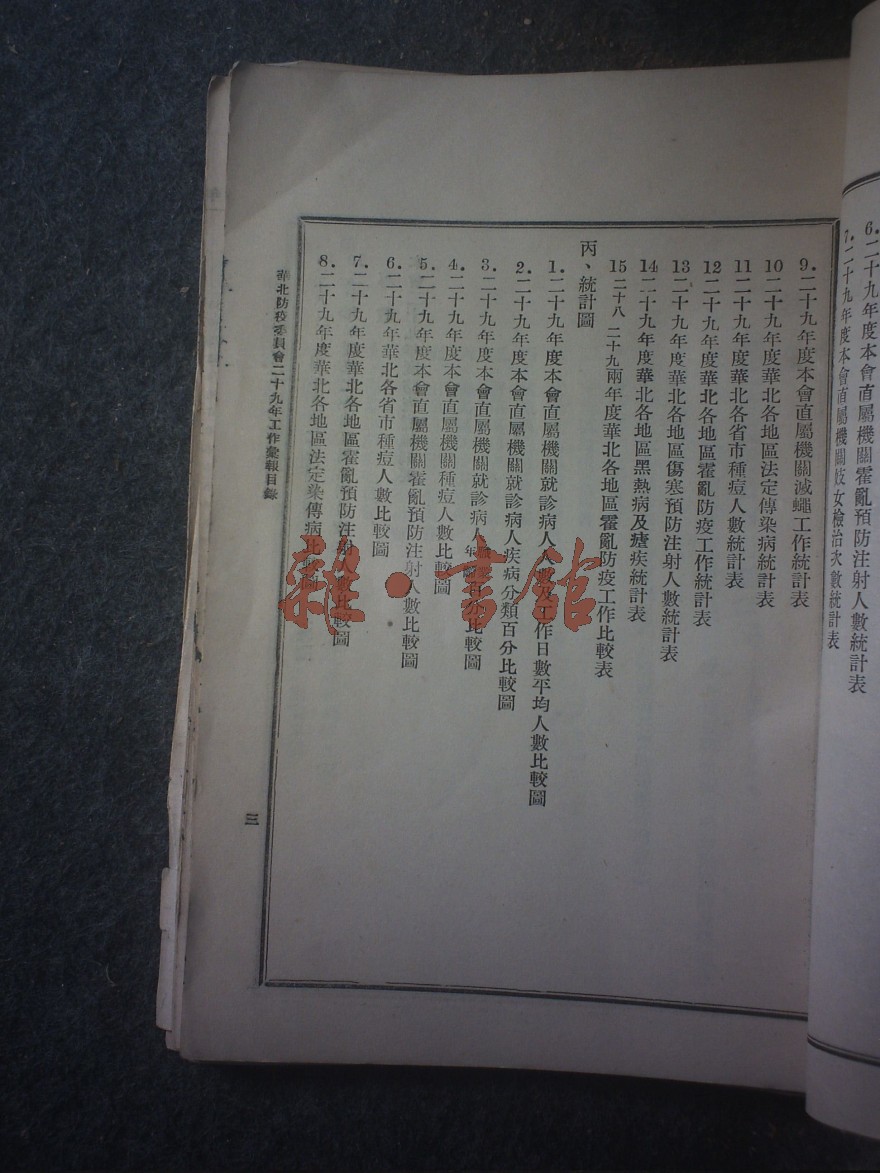 6.二十九年度本會直屬機關霍亂預防注射人數統計表
7.二十九年度本會直屬機關妓女檢治次數統計表
9.二十九年度本會直屬機關滅蠅工作統計表
10 二十九年度華北各地區法定傳染病統計表
11 二十九年度華北各省市種痘人數統計表
12 二十九年度華北各地區霍亂防疫工作統計表
13 二十九年度華北各地區傷寒預防注射人數統計表
14 二十九年度華北各地區黑熱病及瘧疾統計表
15 二十八 二十九兩年度華北各地區霍亂防疫工作比較表
丙、統計圖
1.二十九年度本會直屬機關就診病人人數及工作日數平均人數比較圖
2.二十九年度本會直屬機關就診病人疾病分類百分比較圖
3.二十九年度本會直屬機關就診病人年齡百分比較圖
4.二十九年度本會直屬機關種痘人數比較圖
5.二十九年度本會直屬機關霍亂預防注射人數比較圖
6.二十九年華北各省市種痘人數比較圖
7.二十九年度華北各地區霍亂預防注射人數比較圖
8.二十九年度華北各地區法定染傳病比較圖
華北防疫委員會二十九年工作彙報目錄
三
雜·書館